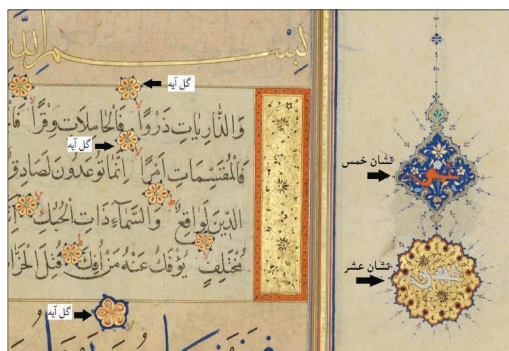 بِسْمِ اللّٰه
گل آیه
وَالذَّارِيَاتِ ذَرْوًا فَالْحَامِلَاتِ وِقْرًا
گل آیه
فَالْمُقَسِّمَاتِ أَمْرًا إِنَّمَا تُوعَدُونَ لَصَادِقٌ
الدِّينَ لَوَاقِعٌ وَالسَّمَاءِ ذَاتِ الْحُبُكِ
مُخْتَلِفٍ يُؤْفَكُ عَنْهُ مَنْ أُفِكَ قُتِلَ
گل آیه
نشان خمس
نشان عشر